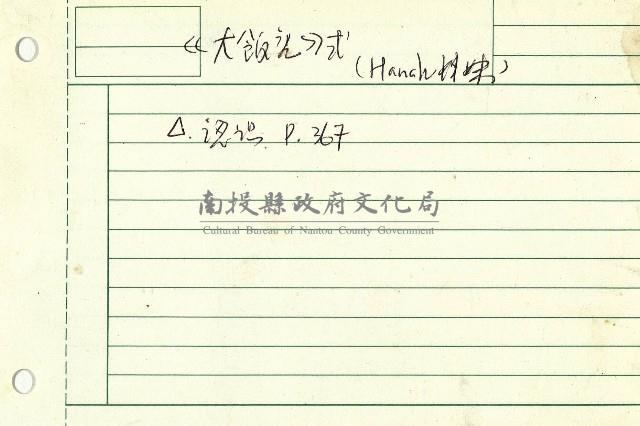 《大飯店》式
(Hanah姊妹)
△. 認識 P. 367
南投縣政府文化局
Cultural Bureau of Nantou County Government